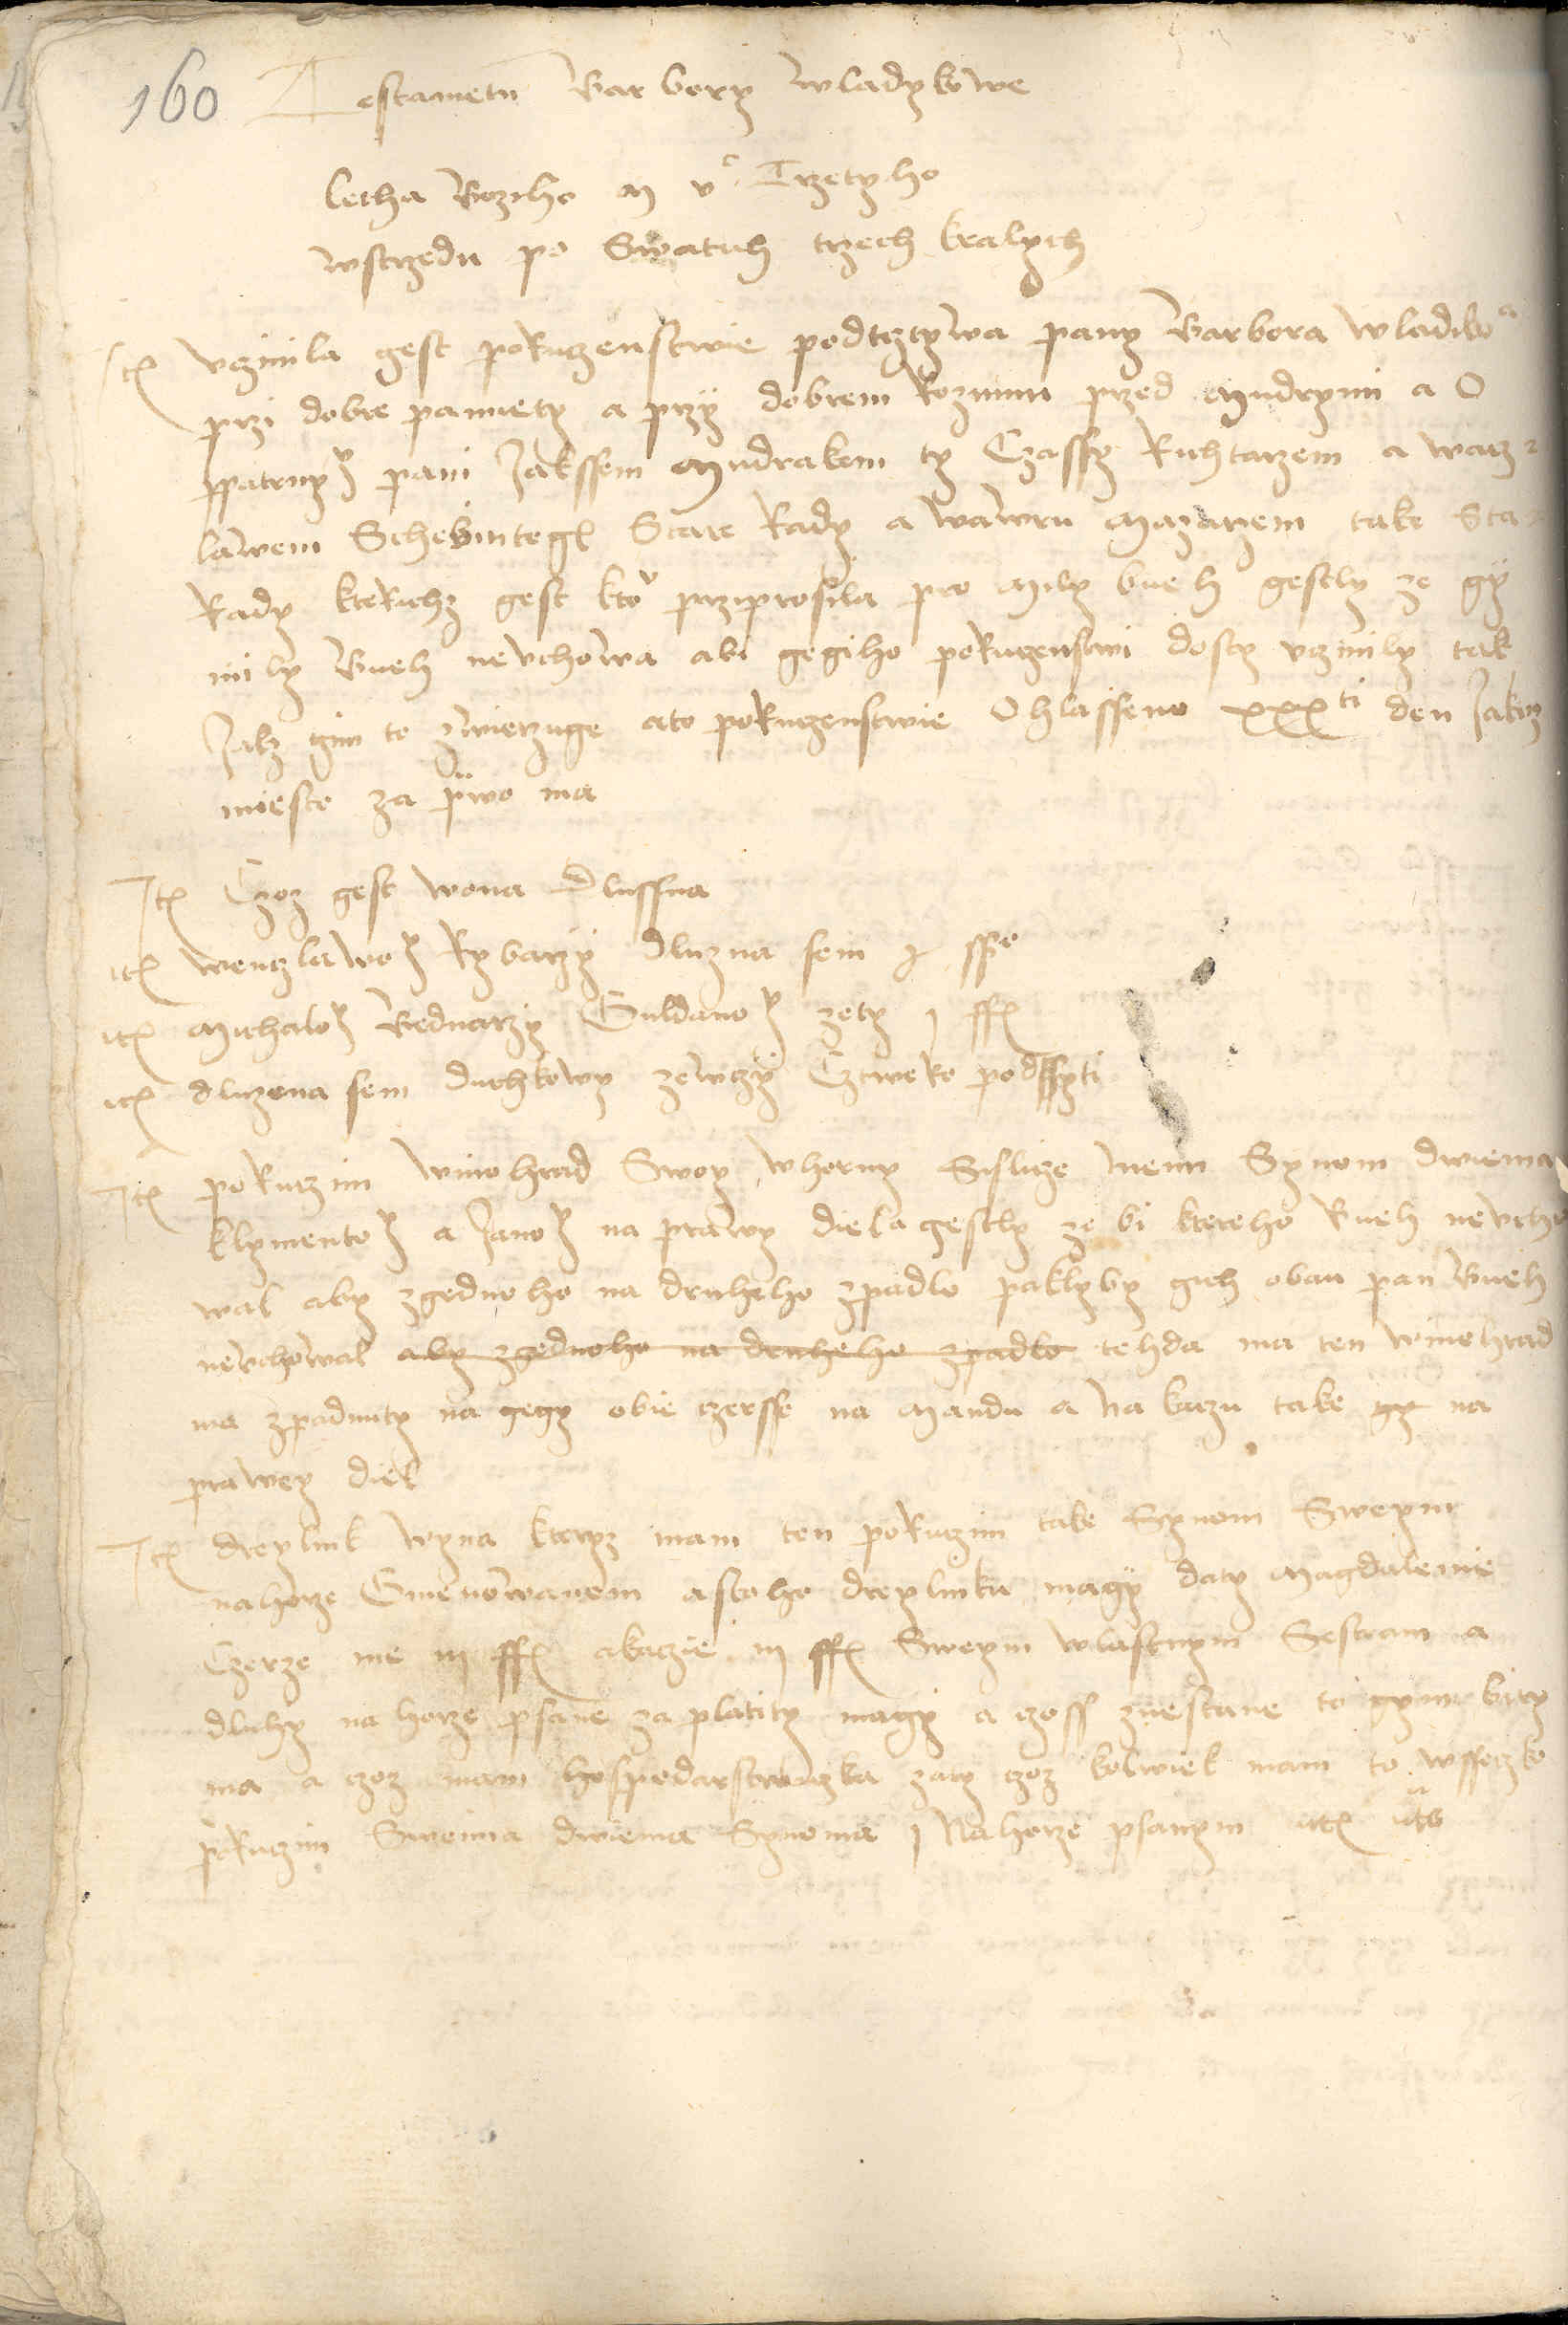 160
Testametu Barbory Wladykowe
Letha Boziho M vc Trzetyho
wstrzedu po Swatuh trzech kralych
Ite vczinila gest poruczenstwie podtcztywa pany Barbora Wladiko a
przi dobre pamiety a przy dobrem Rozumu przed Mudrymi a O
patrny pani Jakssem Mudrakem ty Czassy Richtarzem a waczz
lawem Stare Rady a wawru take Sta
Rady kterichz gest kto prziprosila pro Mily bueh gestly ze gy
mily Bueh nevchowa abi gegiho poruczenstwi dosty vczinily tak
Jakz gim to zwierzuge ato poruczenstwie Ohlassene xxx ti den Jakoz
mieste za prwo ma
Ite Czoz gest wona Dlussna
ite wenczlawo Rybarzy dluzna sem
ite Michalo Bednarzy Guldano zety j ss
ite dluzena sem Duchkowy Cztweko podssyti
Ite poruczim winohrad Swoy whorny Sislicze Memu Synom dwiema
klymento a Jano na prawy diela gestly ze bi ktereho Bueh nevcho
wal aby zgednoho na druheho zpadlo paklyby gich obau pan Bueh
nevchowal aby zgednoho na druheho zpadlo tehda ma ten winohrad
ma zpadnuty na gegy obie czersse na Mandu a na kaczu take gy na
prawey diel
Ite dreylink wyna kteryz mam ten poruczim take Synom Sweym
nahorze Gmenowanem astoho dreylinku magy daty Magdalenie
Czerze me iij ss akaczie iij ss Sweym wlastnym Sestram a
dluhy na horze psane za platity magy a czoss zuestane to gym bity
ma a czoz mam hospodarstwiczka zaty czoz kolwiek mam to wsseczko
poruczim Sweima dwiema Synoma j Nahorze psanym